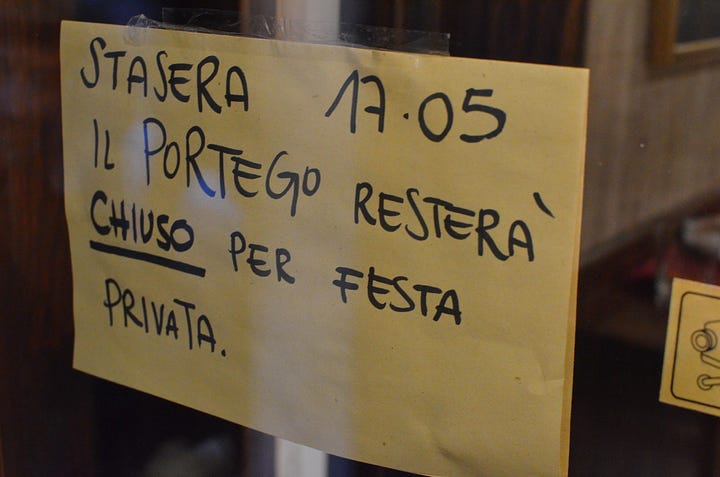 STASERA 17.05
IL PORTEGO RESTERÀ
CHIUSO PER FESTA
PRIVATA.